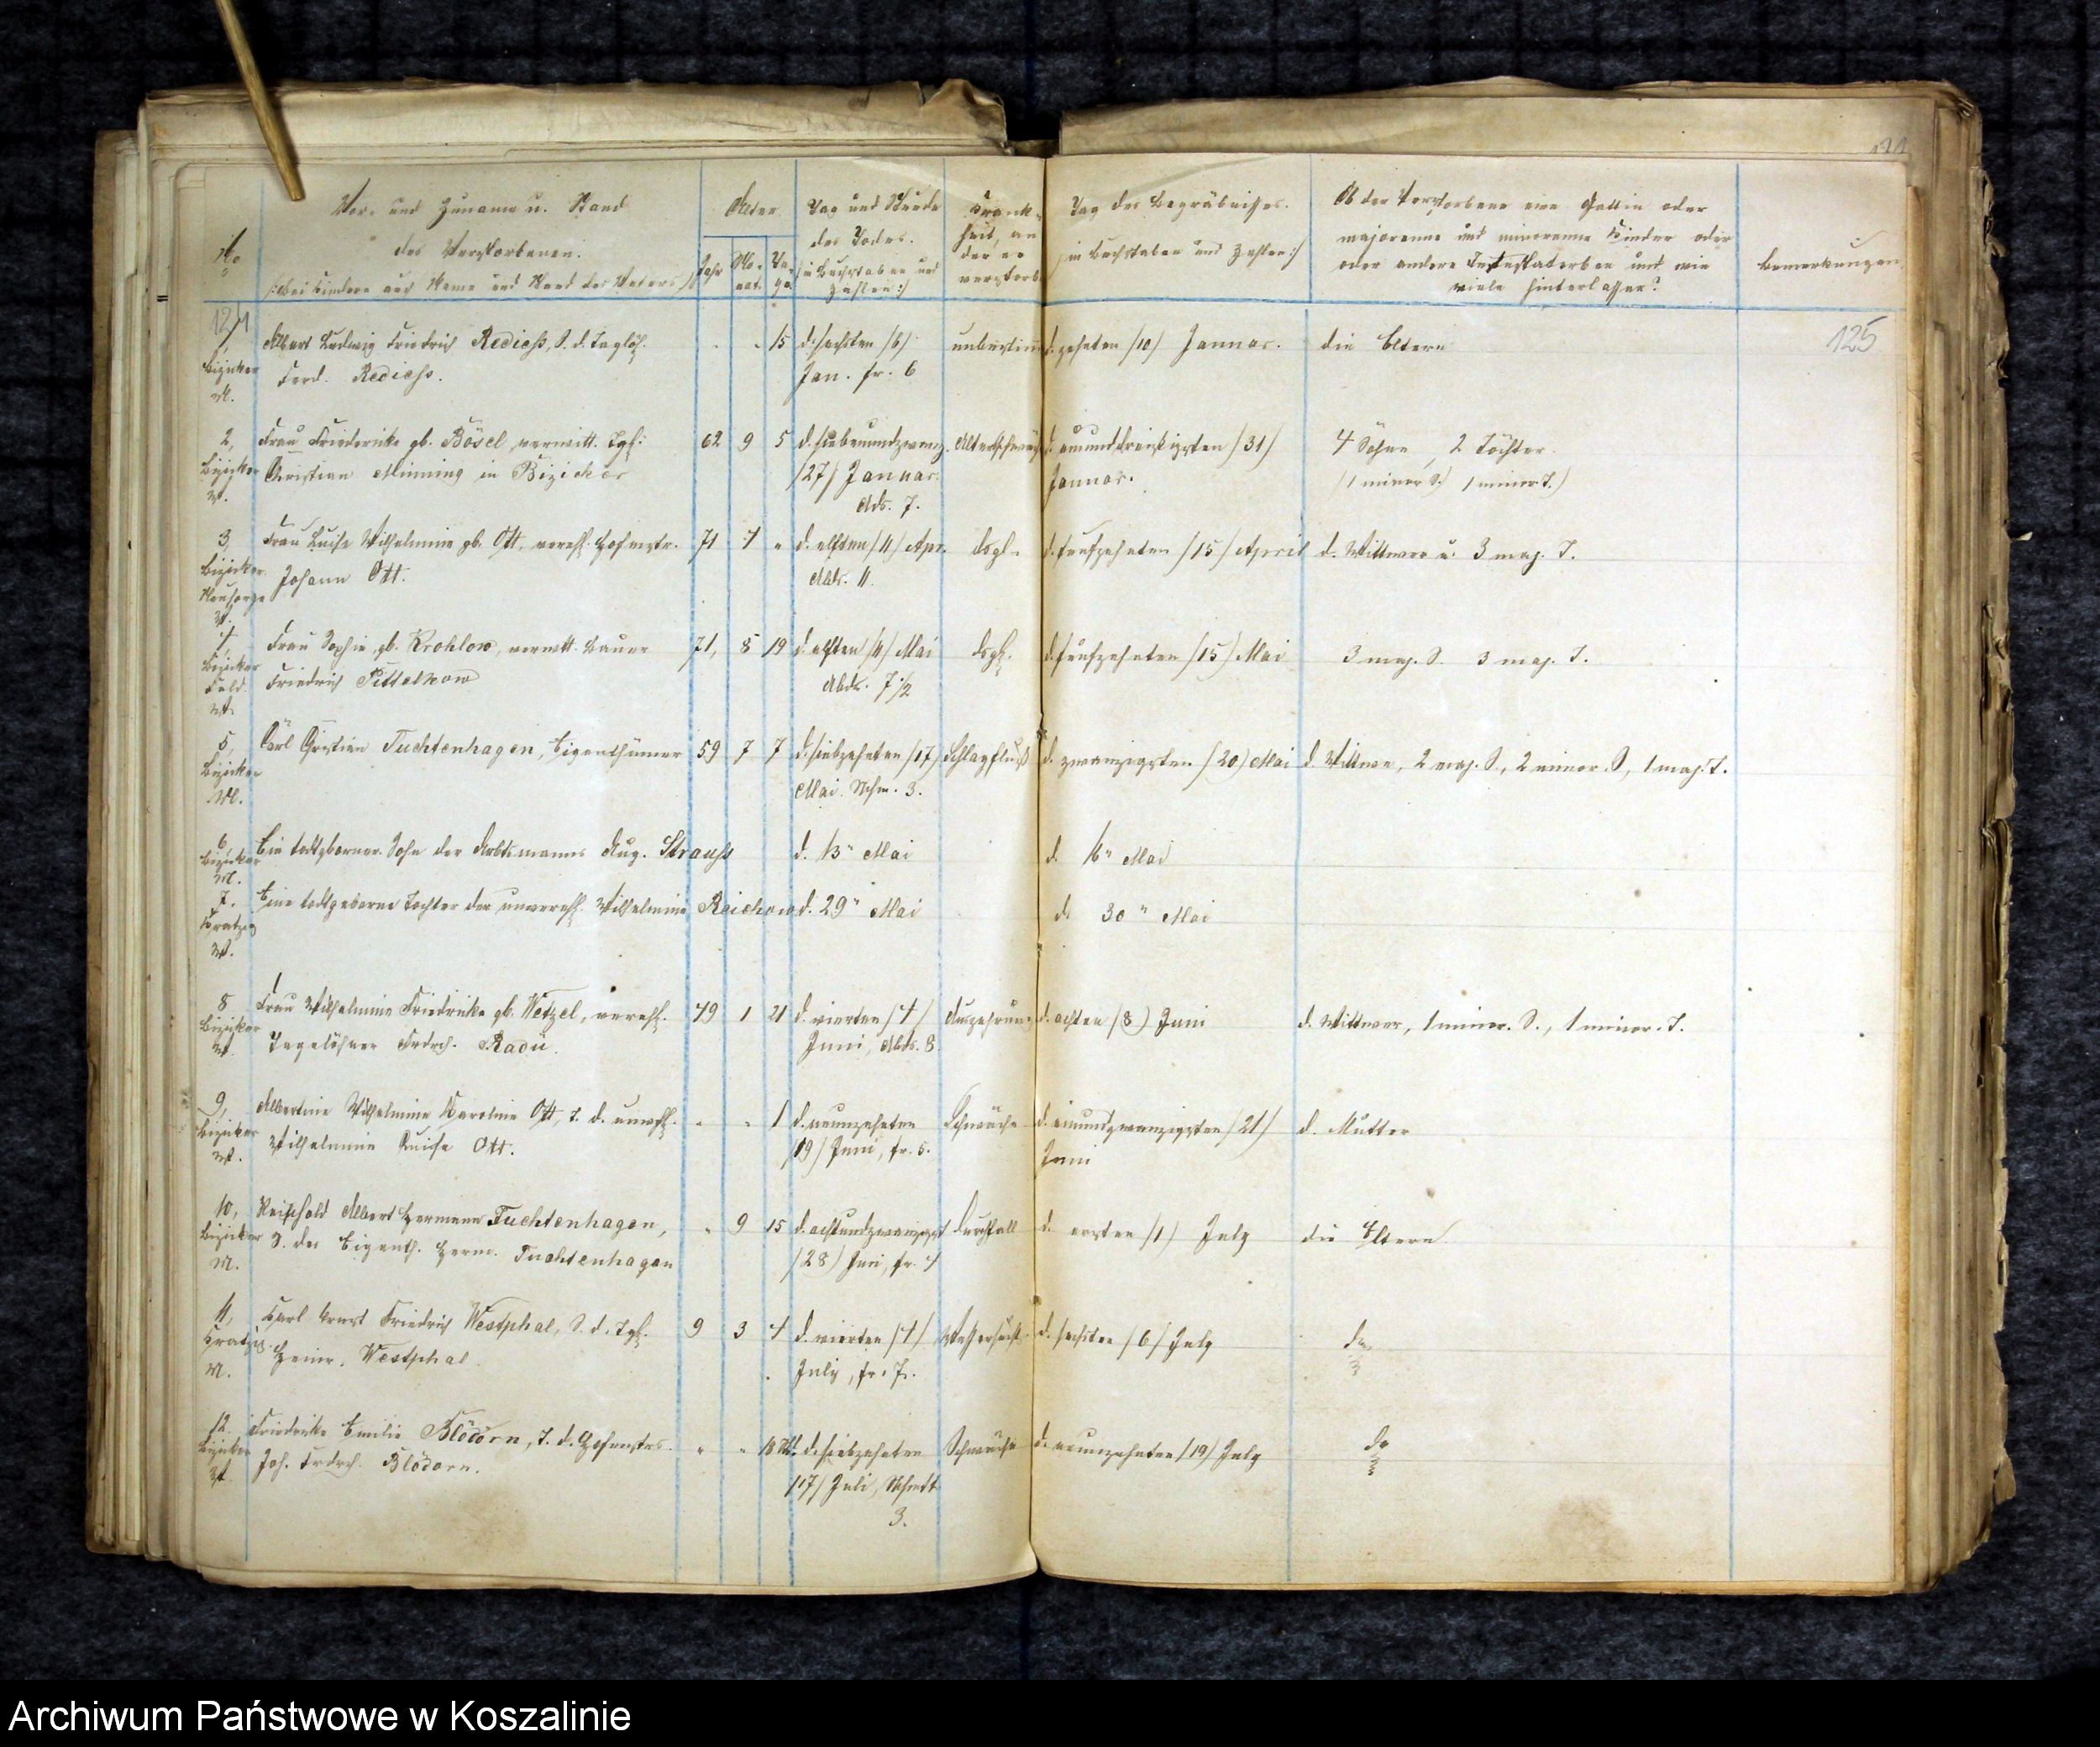 No
Vor- und Zuname u. Stand
des Verstorbenen.
/:bei Kindern auch Name und Stand des Vaters:/
Alter
Jahr
Mo-
nat.
Ta-
ge.
Tag und Stunde
des Todes.
/:in Buchstaben und
Zahlen:/
Krank-
heit, an
der er
verstorb.
Tag des Begräbnisses.
/:in Buchstaben und Zahlen:/
Ob der Verstorbene eine Gattin oder
majorenne und minorenne Kinder oder
oder andere Intestaterben und wie
viele hinterlassen?
Bemerkungen
121
125
Biziker
M.
Albert Ludwig Friedrich Rediess, S. d. Taglöh.
Ferd. Rediess.
" " 15
d. sechsten /6/
Jan. fr. 6
unbestimmt
d. zehnten /10/ Januar.
die Eltern
2,
Biziker
W.
Frau Friedericke gb. Bösel, verwitt. Tgl.
Christian Minning in Biziker
62 9 5
d. siebenundzwanz.
/27/ Januar.
Abds. 7.
Altersschwäche
d. einunddreißigsten /31/
Januar.
4 Söhne, 2 Töchter.
(1 minor S.) 1 minor T.)
3
Biziker
W.
Frau Luise Wilhelmine gb. Ott, verehl. Hofmstr.
Johann Ott.
71 4 "
d. elften /11/ Apr.
Abds. 11.
dsgl.
d. fünfzehnten /15/ April
d. Wittwer u. 3 maj. T.
4,
Biziker
Feld.
W.
Frau Sophie, gb. Krohlow, verwitt. Bauer
Friedrich Pittelkow
71, 8 19
d. elften /11/ Mai
Abds. 7 1/2
dsgl.
d. fünfzehnten /15/ Mai
3 maj. S. 3 maj. T.
5,
Biziker
M.
Carl Christian Tuchtenhagen, Eigenthümer
59 7 7
d. siebzehnten /17/
Mai Nchm. 3.
Schlagfluß
d. zwanzigsten /20/ Mai
d. Wittwe, 2 maj. S., 2 minor. S., 1 maj. T.
6,
Biziker
M.
Ein todtgborner Sohn des Arbtsmanns Aug. Strauss
d. 13" Mai
d. 16" Mai
7.
Kratzig
W.
Eine todtgeborne Tochter der unverehl. Wilhelmine Reichow
d. 29" Mai
d. 30" Mai
8
Biziker
W.
Frau Wilhelmine Friedricke gb. Wetzel, verehl.
Tagelöhner Frdrch. Radü.
49 1 21
d. vierten /4/
Juni, Abds. 8.
Auszehrung
d. achten /8/ Juni
d. Wittwer, 1 minor. S., 1 minor. T.
9,
Biziker
W.
Albertine Wilhelmine Karoline Ott, T. d. unverehl.
Wilhelmine Luise Ott.
" " 1
d. neunzehnten
/19/ Juni, fr. 5.
Schwäche
d. einundzwanzigsten /21/
Juni
d. Mutter
10,
Biziker
M.
Reinhold Albert Hermann Tuchtenhagen,
S. des Eigenth. Herm. Tuchtenhagen
" 9 15
d. achtundzwanzigst
/28/ Juni, fr. 4
Durchfall
d. ersten /1/ July
die Eltern
11,
Kratzig
M.
Karl Ernst Friedrich Westphal, S. d. Tgl.
Heinr. Westphal.
9 3 4
d. vierten /4/
July, fr. 7.
Wassersucht
d. sechsten /6/ July
do
12.
Biziker
W.
Friedricke Emilie Blödorn, T. d. Hofmstrs.
Joh. Frdrch. Blödorn.
" " 18 Std.
d. siebzehnten
/17/ Juli, Nchmtt
3.
Schwäche
d. neunzehnten /19/ July
do
Archiwum Państwowe w Koszalinie